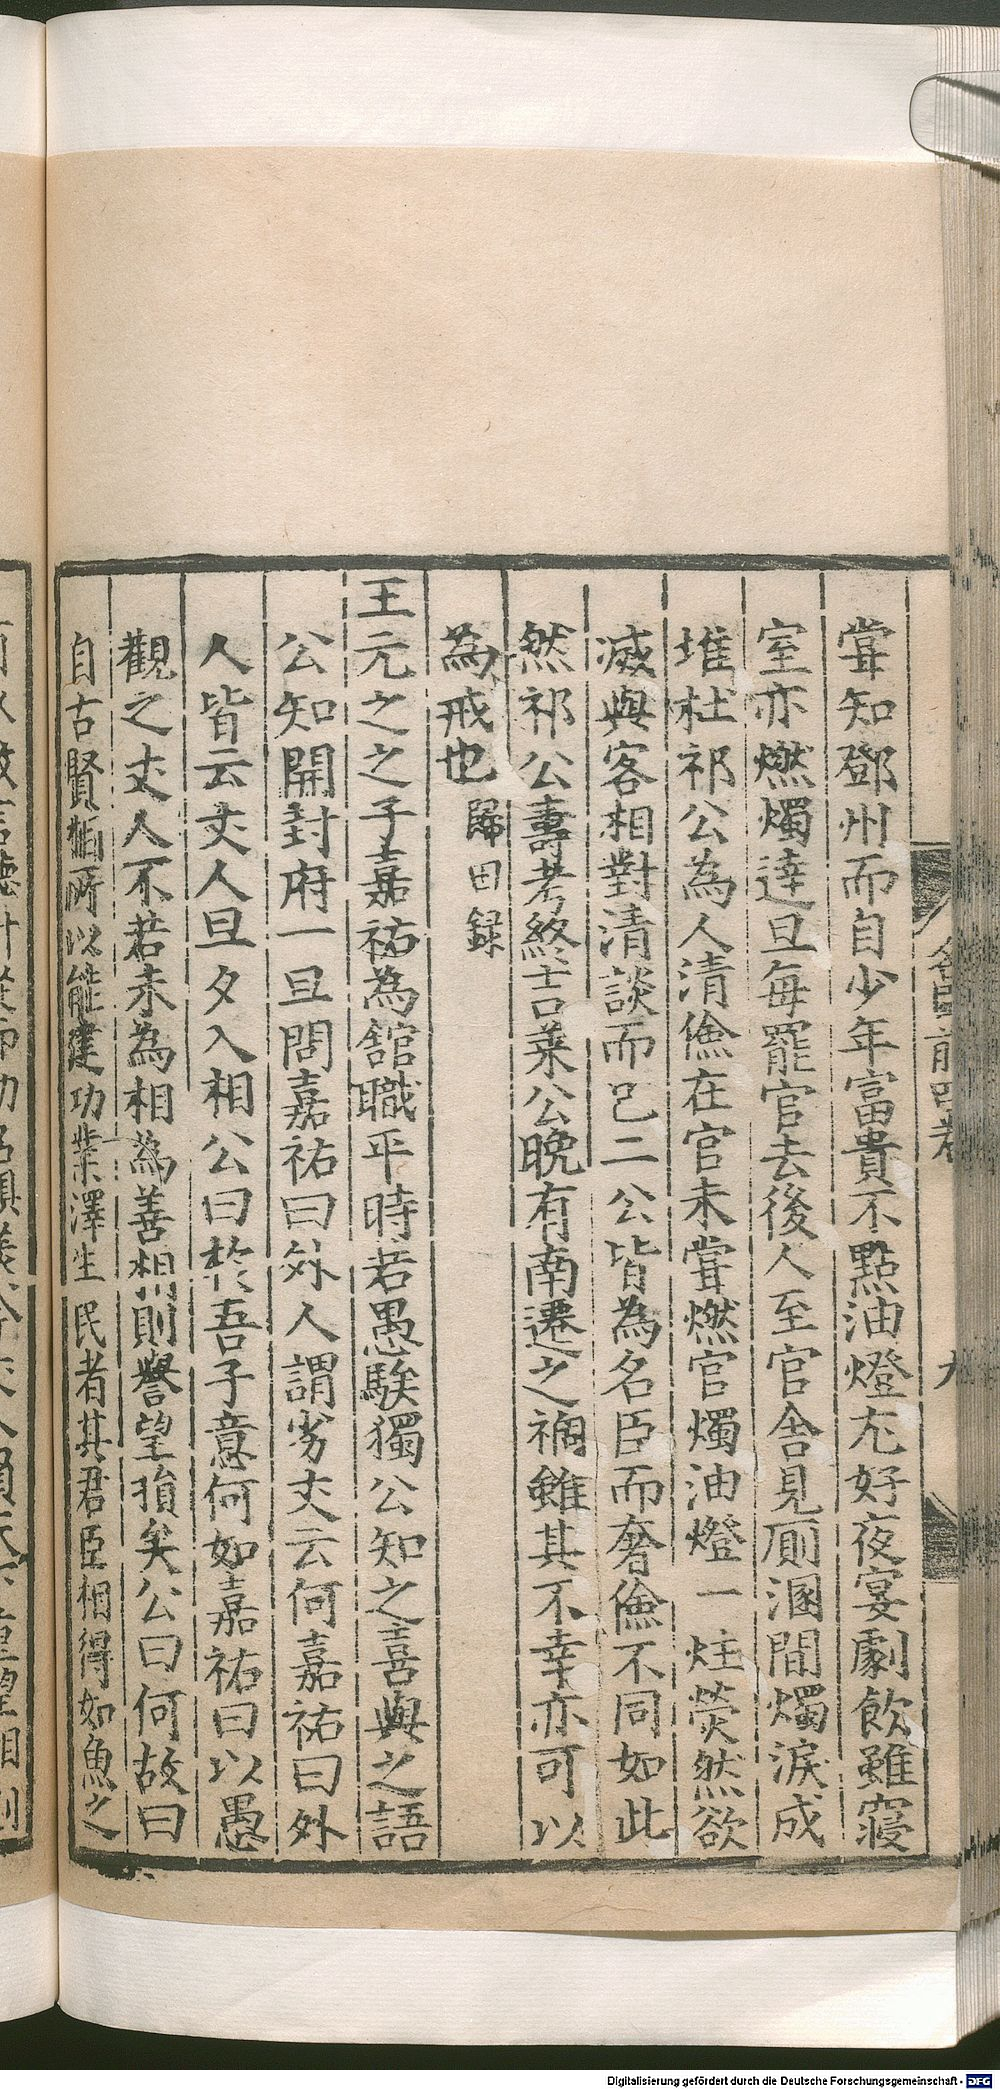 嘗知鄧州而自少年富貴不點油燈尤好夜宴劇飲雖寢
室亦燃燭達旦每罷官去後人至官舍見廁溷間燭淚成
堆杜祁公為人清儉在官未嘗燃官燭油燈一炷熒然欲
滅與客相對清談而已二公皆為名臣而奢儉不同如此
然祁公壽考終吉萊公晚有南遷之禍雖其不幸亦可以
為戒也 歸田録
王元之之子嘉祐為舘職平時若愚騃獨公知之喜與之語
公知開封府一旦問嘉祐曰外人謂劣丈云何嘉祐曰外
人皆云丈人旦夕入相公曰於吾子意何如嘉祐曰以愚
觀之丈人不若未為相為善相則譽望損矣公曰何故曰
自古賢相所以能建功業澤生民者其君臣相得如魚之
Digitalisierung gefördert durch die Deutsche Forschungsgemeinschaft - DFG